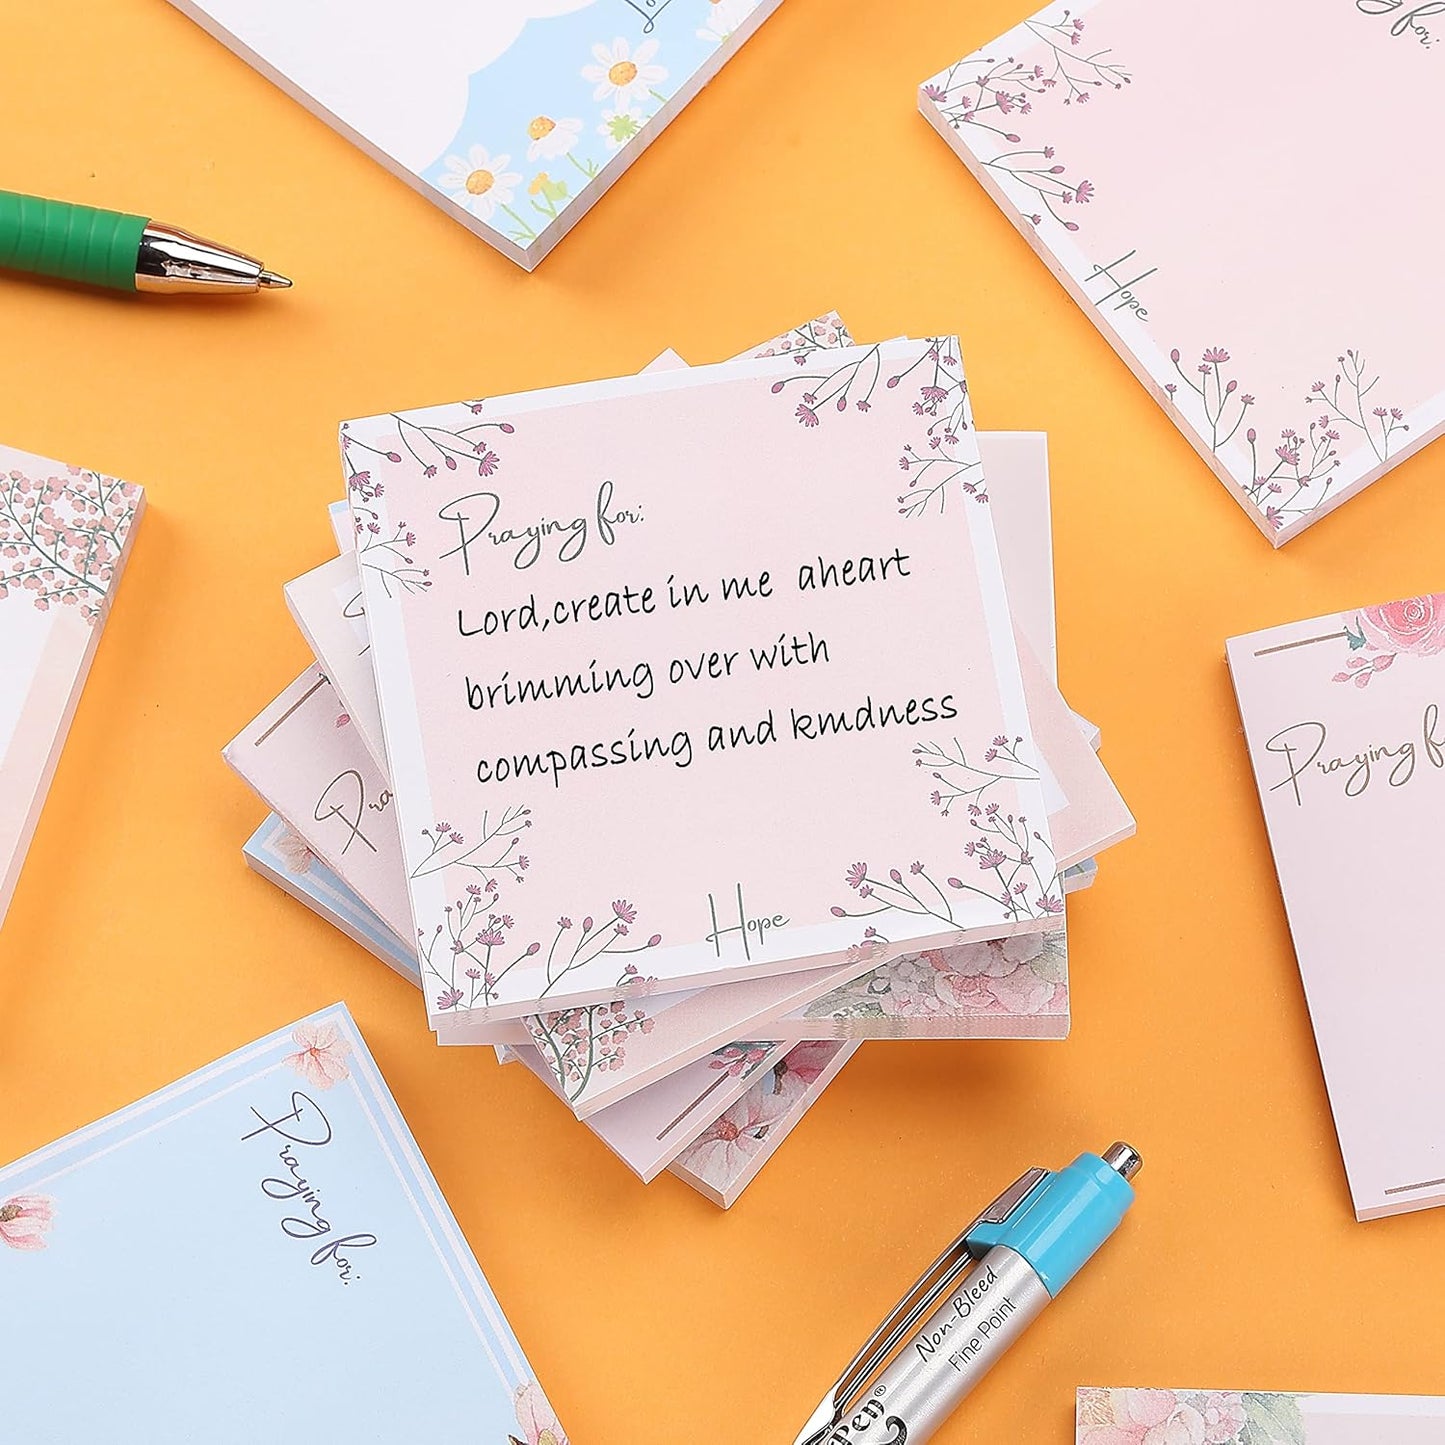 for:
Hope
Praying for:
Lord,create in me aheart
brimming over with
compassing and kmdness
Hope
Pra
Praying f
Praying for:
Non-Bleed
Fine Point
Pen®